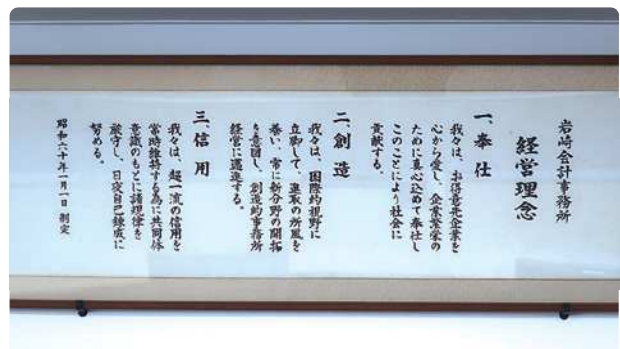 岩崎会計事務所
経営理念
一、奉仕
我々は、お得意先企業を
心から愛し、企業繁栄の
ために真心込めて奉仕し
このことにより社会に
貢献する。
二、創造
我々は、国際的視野に
立脚して、進取の所風を
養い、常に新分野の開拓
を意図し、創造的事務所
経営に邁進する。
三、信用
我々は、超一流の信用を
常時維持する為に共同体
意識のもとに諸規律を
厳守し、日夜自己錬成に
努める。
昭和六十年一月一日 制定